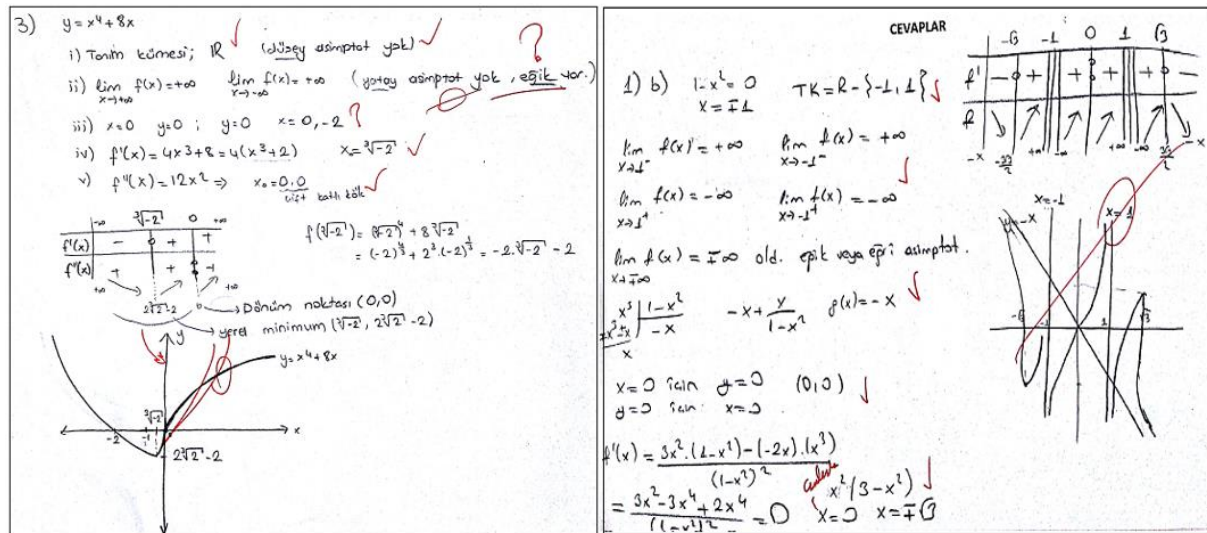 3) y = x⁴ + 8x
i) Tanım kümesi; ℝ (düşey asimptot yok)
ii) lim f(x) = +∞ lim f(x) = +∞ (yatay asimptot yok, eğik var.) ?
x→+∞ x→-∞
iii) x=0 y=0 ; y=0 x=0,-2 ?
iv) f'(x) = 4x³+8 = 4(x³+2) x₀=∛-2
v) f''(x) = 12x² => x₀ = 0,0
çift katlı kök
-∞ ∛-2 0 +∞
f'(x) - 0 + +
f''(x) + + +
+∞ +∞
2∛2-2 0
f(∛-2) = (∛-2)⁴ + 8∛-2
= (-2)^4/3 + 2³.(-2)^1/3 = -2.∛-2 - 2
Dönüm noktası (0,0)
yerel minimum (∛-2, 2∛2-2)
y
y=x⁴+8x
∛-2
-2 -1 x
2∛2-2
CEVAPLAR
1) b) 1-x² = 0 TK = R - {-1, 1}
x = ∓1
lim f(x) = +∞ lim f(x) = +∞
x→1⁻ x→-1⁻
lim f(x) = -∞ lim f(x) = -∞
x→1⁺ x→-1⁺
lim f(x) = ∓∞ old. eğik veya eğri asimptot.
x→∓∞
x³ | 1-x² -x + x/(1-x²) g(x) = -x
-x
x
x=0 için y=0 (0,0)
y=0 için x=0
f'(x) = 3x².(1-x²)-(-2x).(x³)
(1-x²)²
= 3x²-3x⁴+2x⁴ = 0 x²(3-x²)
(1-x²)² x=0 x=∓√3
-√3 -1 0 1 √3
f' - 0 + + 0 + + 0 -
+∞ -∞ +∞ -∞
y=-x x=-1 x=1
-√3 -1 1 √3